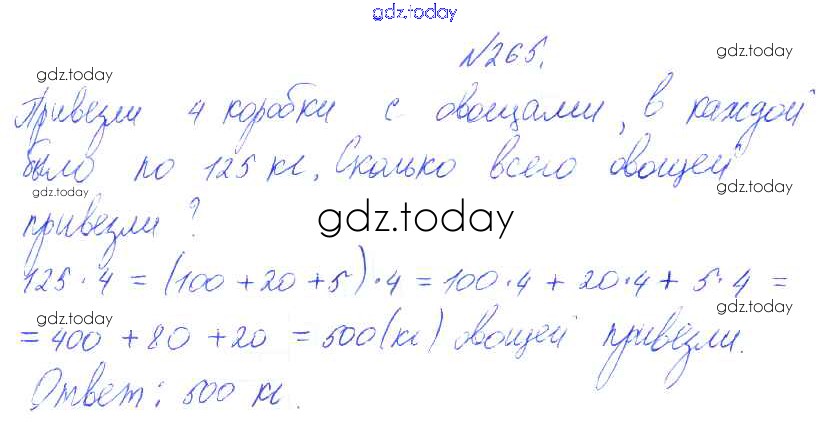 gdz.today
№265.
gdz.today
gdz.today
Привезли 4 коробки с овощами, в каждой
было по 125 кг. Сколько всего овощей
gdz.today
gdz.today
привезли?
gdz.today
125·4 = (100+20+5)·4 = 100·4 + 20·4 + 5·4 =
gdz.today
gdz.today
= 400 + 80 + 20 = 500 (кг) овощей привезли.
Ответ: 500 кг.